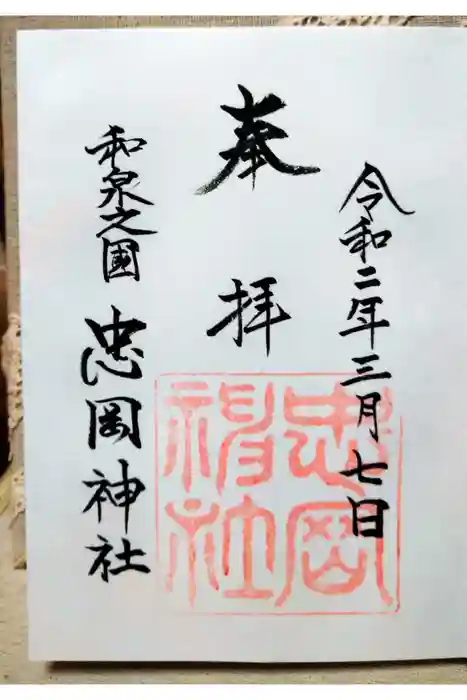 令和二年三月七日
奉拝
和泉之國 忠岡神社
忠岡
神社